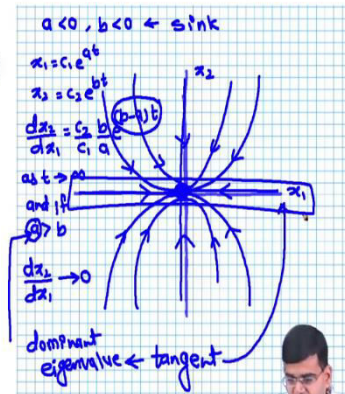 a<0, b<0 ← sink
x₁=c₁e^{at}
x₂
x₂=c₂e^{bt}
dx₂/dx₁ = c₂/c₁ b/a e^{(b-a)t}
as t→∞
x₁
and if
a>b
dx₂/dx₁ →0
dominant
eigenvalue ← tangent